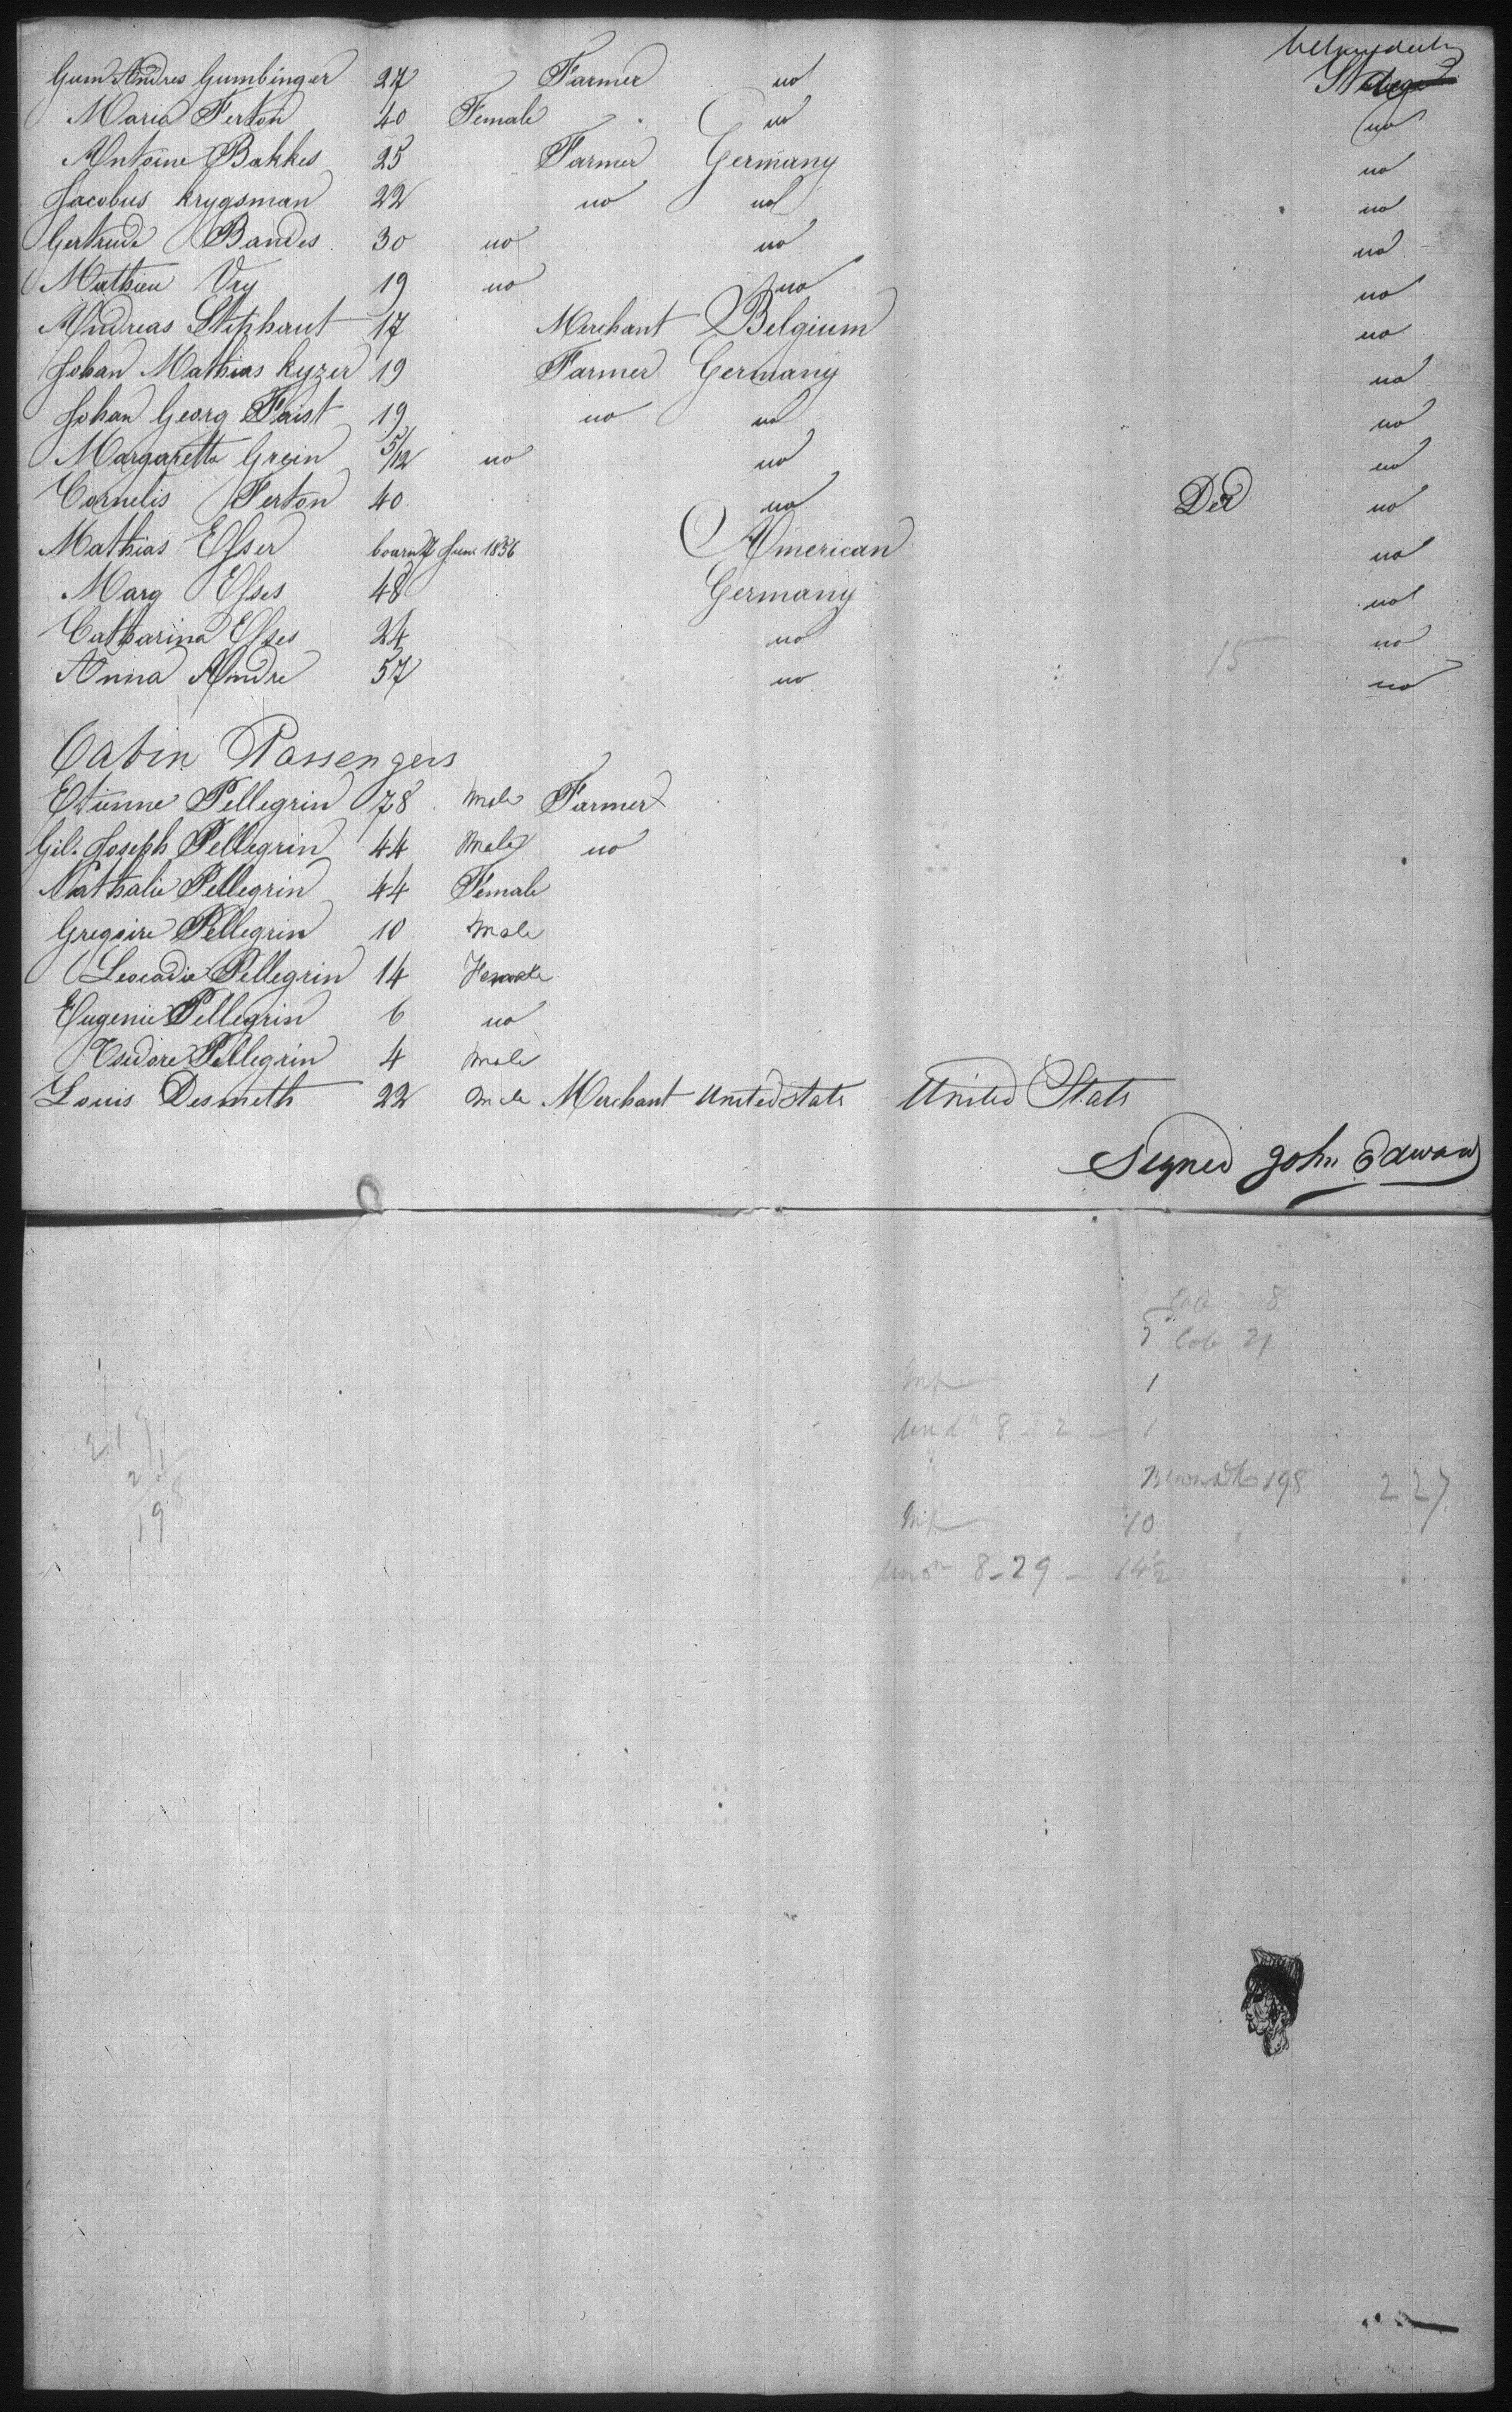 Gum Andres Gumbinger 27 Farmer no
Maria Ferton 40 Female no no
Antoine Bakkes 25 Farmer Germany no
Jacobus Krygsman 22 no no no
Gertrude Bandes 30 no no no
Mathieu Vry 19 no no no
Andreas Stephaut 17 Merchant Belgium no
Johan Mathias Kyzer 19 Farmer Germany no
Johan Georg Faist 19 no no no
Margaretta Grein 5/12 no no no
Cornelis Ferton 40 no Ded no
Mathias Esser bourn 7 June 1836 American no
Marg Esses 48 Germany no
Catharina Esses 24 no no
Anna Andre 57 no 15 no
Cabin Passengers
Etienne Pellegrin 78 Male Farmer
Gil. Joseph Pellegrin 44 Male no
Nathalie Pellegrin 44 Female
Gregoire Pellegrin 10 Male
Leocadie Pellegrin 14 Female
Eugenie Pellegrin 6 no
Isidore Pellegrin 4 Male
Louis Desmeth 22 Male Merchant United State United Stats
Signed John Edward
8
21
1
8 - 2 - 1
198 227
10
8 - 29 - 14½